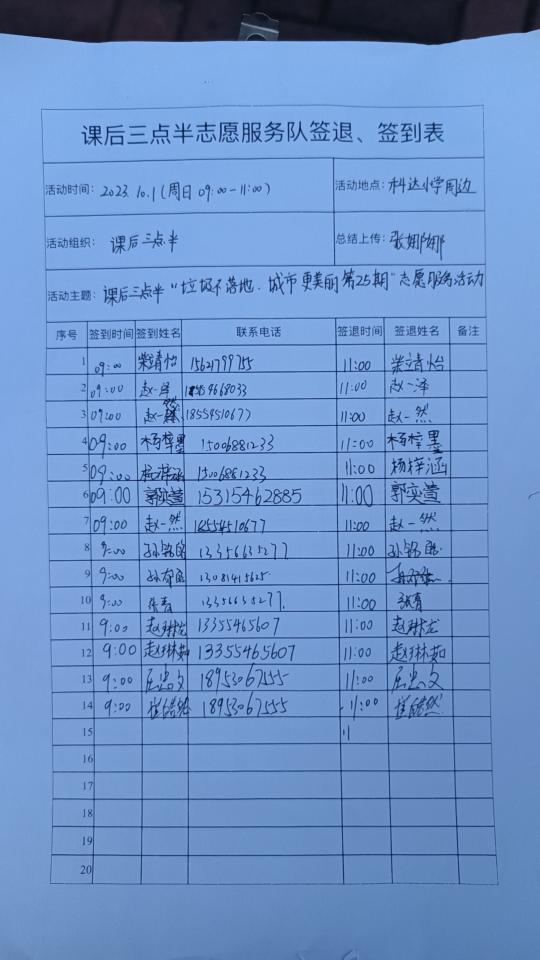 课后三点半志愿服务队签退、签到表
活动时间：2023.10.1(周日 09:00-11:00) 活动地点：科达小学周边
活动组织：课后三点半 总结上传：张娜娜
活动主题：课后三点半"垃圾不落地.城市更美丽第25期"志愿服务活动
序号 签到时间 签到姓名 联系电话 签退时间 签退姓名 备注
1 09:00 柴靖怡 15621799755 11:00 柴靖怡
2 09:00 赵一泽 11:00 赵一泽
3 09:00 赵一然 18554510677 11:00 赵一然
4 09:00 杨梓墨 15006881233 11:00 杨梓墨
5 09:00 杨梓涵 15006881233 11:00 杨梓涵
6 09:00 郭奕萱 15315462885 11:00 郭奕萱
7 09:00 赵一然 18554510677 11:00 赵一然
8 9:00 13356635277 11:00
9 9:00 13081415625 11:00
10 9:00 13356635277. 11:00
11 9:00 赵琳龙 13355465607 11:00 赵琳龙
12 9:00 赵琳茹 13355465607 11:00 赵琳茹
13 9:00 18953067555 11:00
14 9:00 18953067555 11:00
15 11
16
17
18
19
20